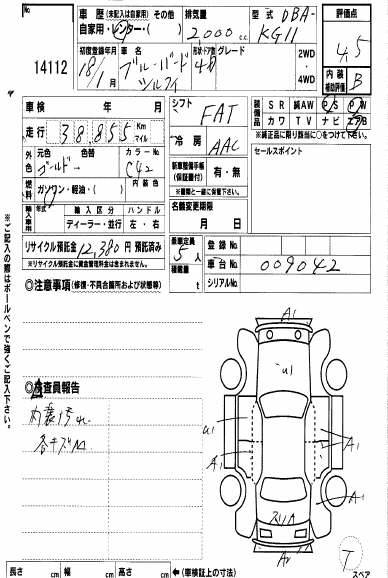 No.
14112
車歴 (未記入は自家用) その他
自家用・レンター・( )
排気量
2,000 c.c.
型式
DBA-
KG11
評価点
4.5
初度登録年月
18/1 月
車名
ブルーバード
シルフィ
形状・ドア数
4D
グレード
2WD
・
4WD
内装
補助評価
B
車検 年 月
シフト
FAT
装備品
SR 純AW PS PW
カワ TV ナビ エアB
※純正品に限り該当に○をつけて下さい。
走行 38,855 Km
マイル
冷房
AAC
セールスポイント
外色
元色 色替
ゴールド→
カラーNo.
C42
新車整備手帳
(保証書付)
有・無
※書類と一緒に保管下さい。
燃料
ガソリン・軽油・( )
内装色
輸入車用
年式
輸入区分
ディーラー・並行
ハンドル
左・右
名義変更期限
月 日
リサイクル預託金 12,380 円 預託済み
※リサイクル預託金に資金管理料金は含まれません。
乗車定員
5 人
積載量
t
登録No.
車台No.
009042
シリアルNo.
◎注意事項 (修復・不具合箇所および状態等)
◎検査員報告
内装汚れ
各キズM
A1
U1
U1
A1
A1
A1
スリ
T
スペア
※ご記入の際はボールペンで強くご記入下さい。
長さ cm 幅 cm 高さ cm ←(車検証上の寸法)